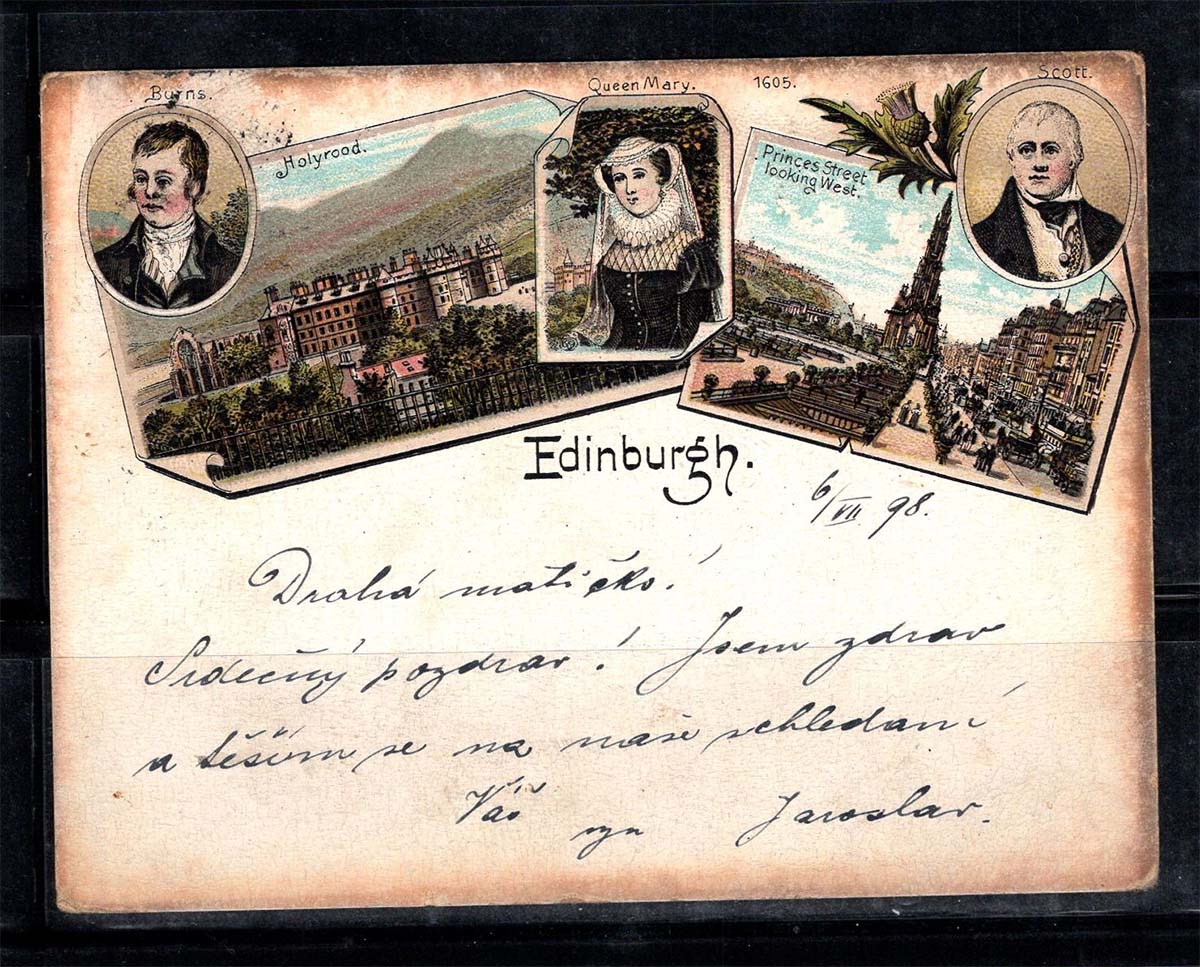 Burns.
Queen Mary.
1605.
Scott.
Holyrood.
Princes Street
looking West.
Edinburgh.
6/VII 98.
Drahá matičko!
Srdečný pozdrav! Jsem zdráv
a těším se na naše schledaní
Váš syn Jaroslav.